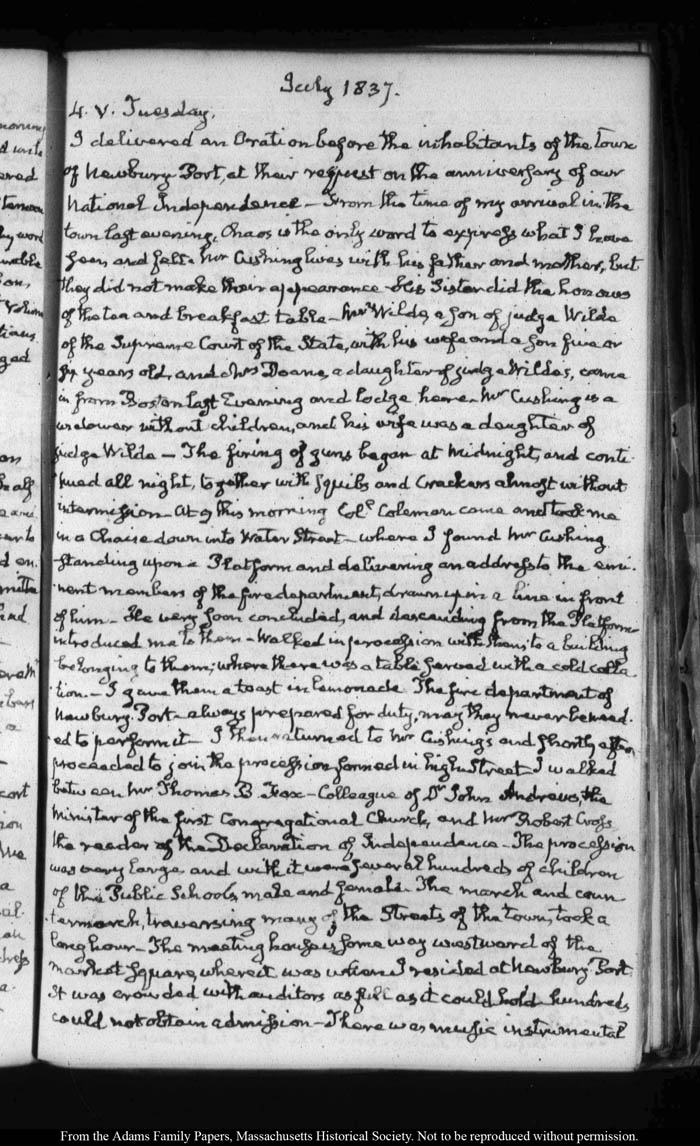 July 1837.
4. V. Tuesday.
I delivered an Oration before the inhabitants of the Town
of Newbury Port, at their request on the anniversary of our
National Independence – From the time of my arrival in the
town last evening, Chaos is the only word to express what I have
seen and felt. Mr Cushing lives with his father and mother, but
they did not make their appearance. His Sister did the honours
of the tea and breakfast table – Mr Wilde, a son of judge Wilde
of the Supreme Court of the State, with his wife and a son five or
six years old, and Mrs Doane, a daughter of judge Wilde's, came
in from Boston last Evening and lodge here. Mr Cushing is a
widower without children, and his wife was a daughter of
judge Wilde – The firing of guns began at midnight, and conti
nued all night, together with squibs and Crackers almost without
intermission – At 9 this morning Coll Coleman came and took me
in a Chaise down into Water Street – where I found Mr Cushing
standing upon a Platform and delivering an address to the emi
nent members of the fire department, drawn up in a line in front
of him – He very soon concluded, and descending from the Platform
introduced me to them – Walked in procession with them to a building
belonging to them; where there was a table served with a cold colla
tion. – I gave them a toast in Lemonade. The fire department of
Newbury-Port – always prepared for duty, may they never be need
ed to perform it – I then returned to Mr Cushing's and shortly after
proceeded to join the procession formed in high Street – I walked
between Mr Thomas B. Fox – Colleague of Dr John Andrews, the
Minister of the first Congregational Church, and Mr Robert Cross
the reader of the Declaration of Independence – The procession
was very large, and with it were several hundreds of children
of the Public Schools, male and female. The march and coun
termarch, traversing many of the Streets of the town, took a
long hour – The meeting house is some way westward of the
market Square, where it was when I resided at Newbury Port
It was crowded with auditors as full as it could hold hundreds
could not obtain admission – There was music instrumental
From the Adams Family Papers, Massachusetts Historical Society. Not to be reproduced without permission.